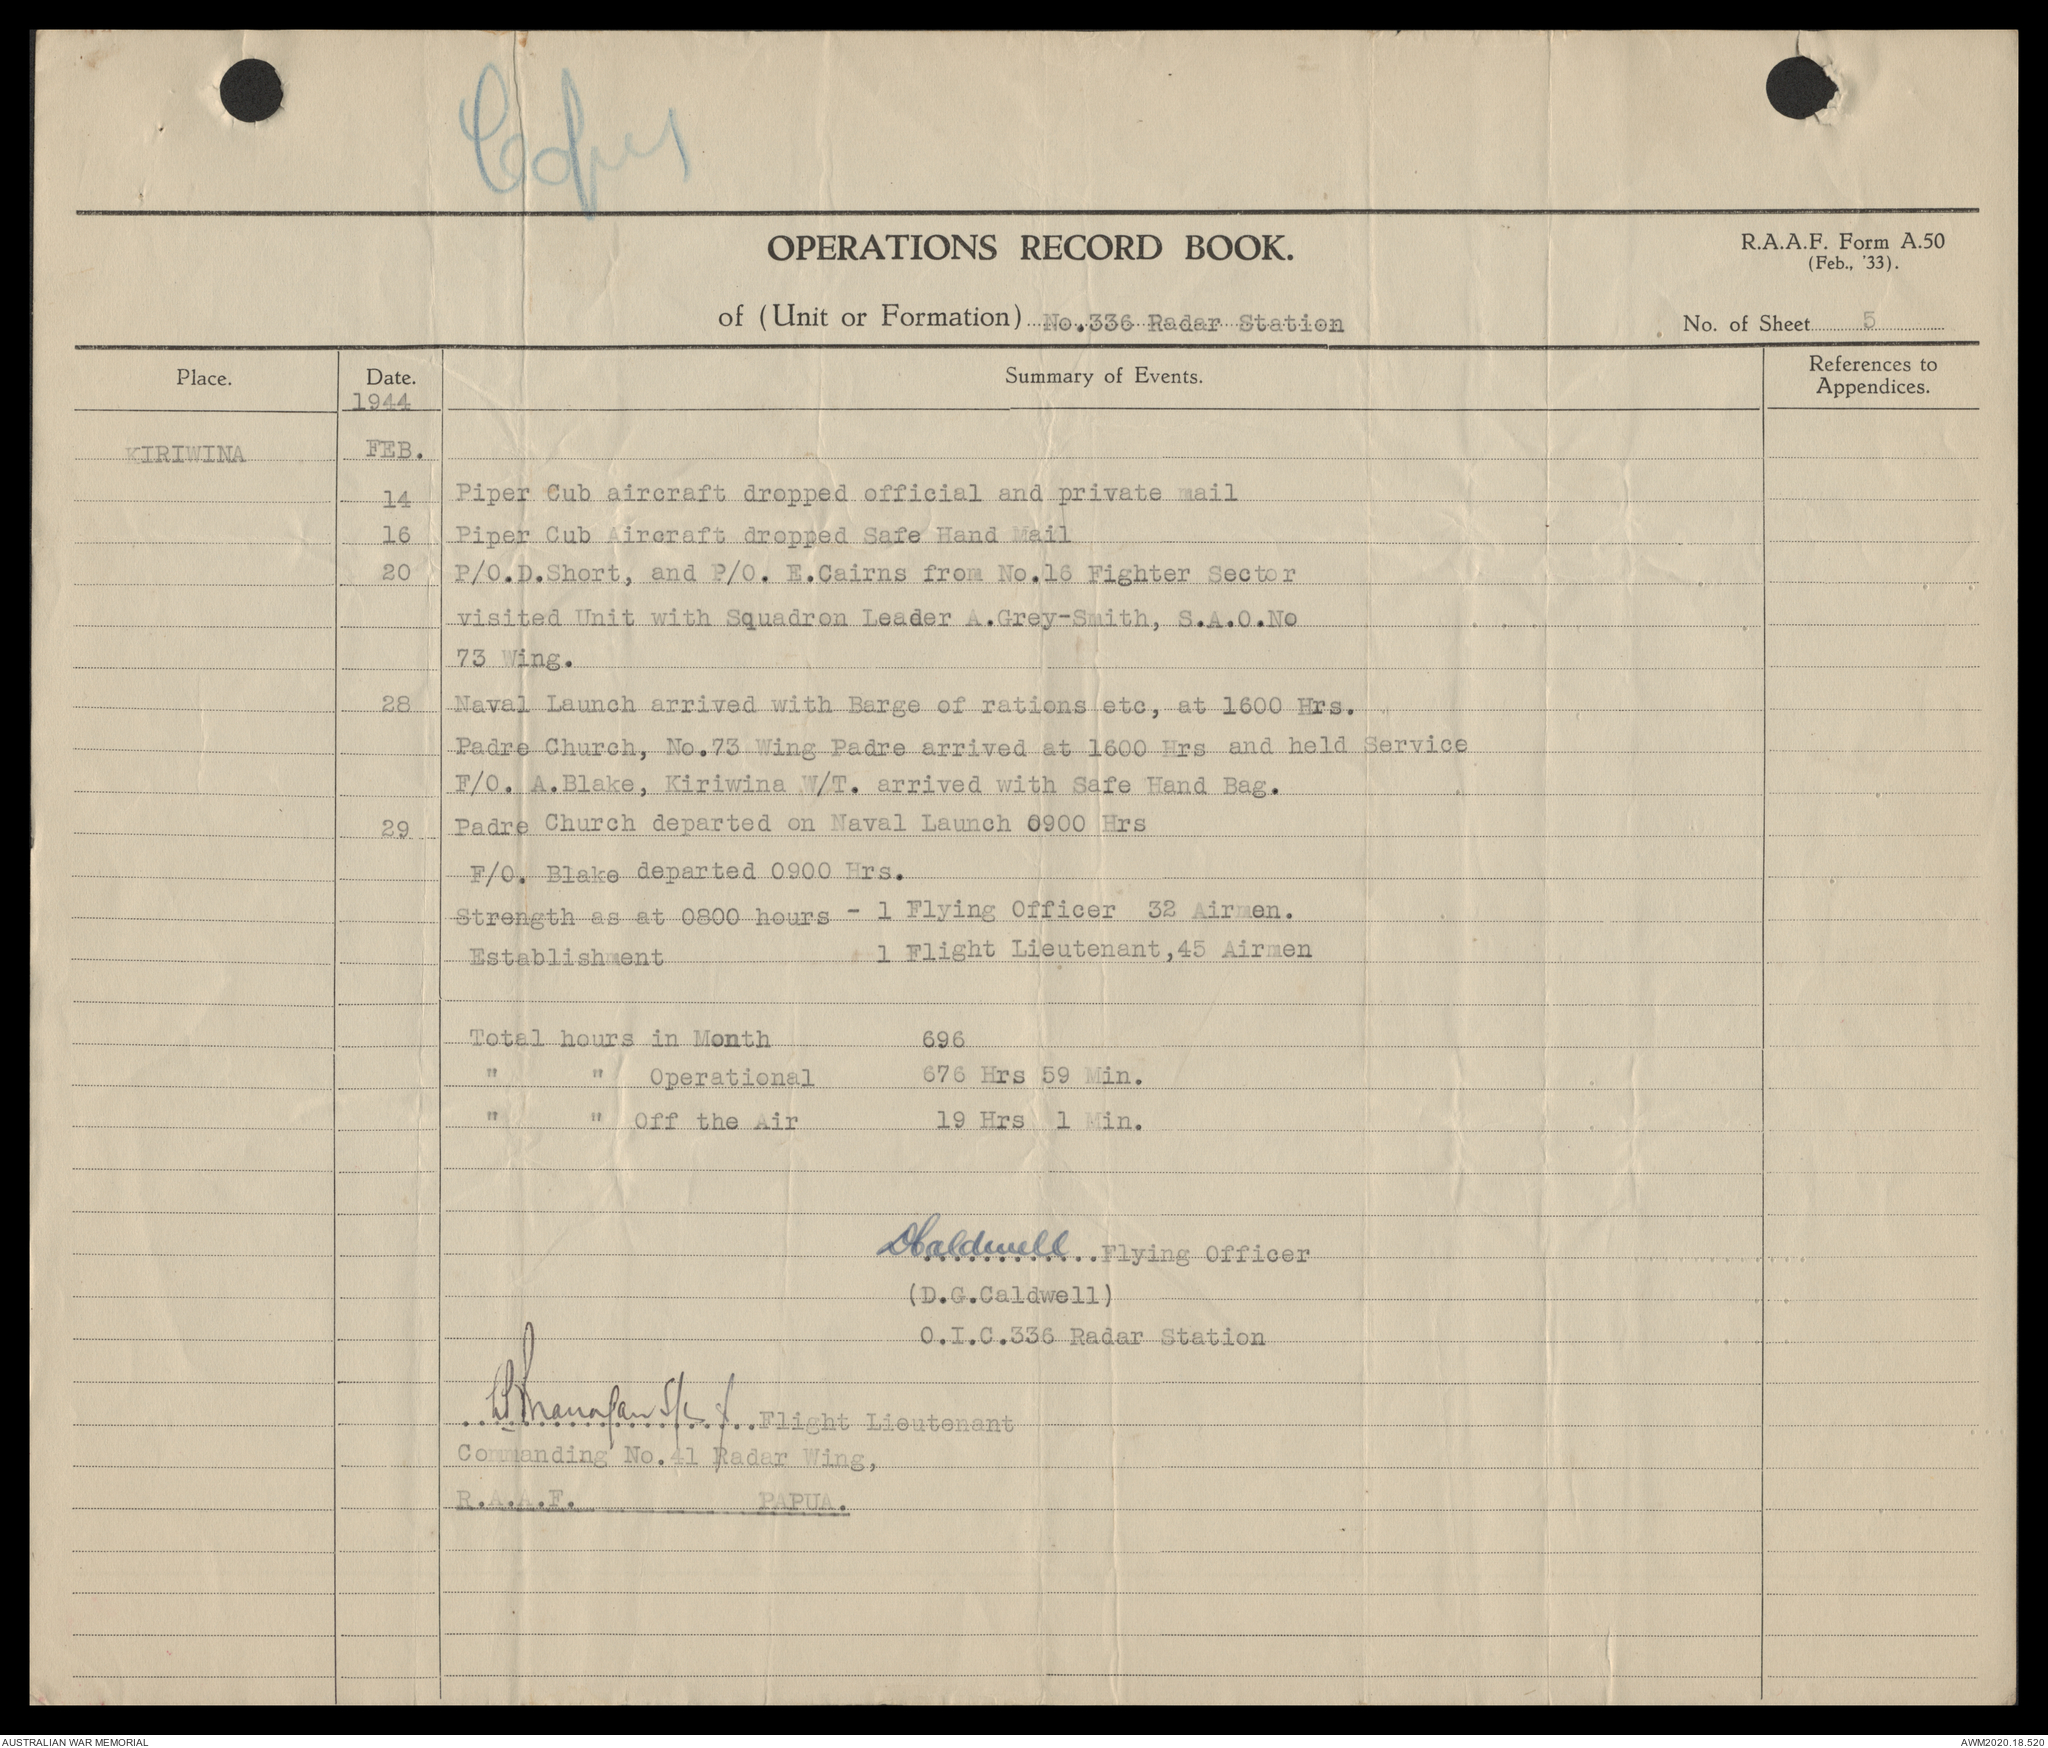 Copy
OPERATIONS RECORD BOOK.
R.A.A.F. Form A.50
(Feb., '33).
of (Unit or Formation) No.336 Radar Station
No. of Sheet 5
Place.
Date.
Summary of Events.
References to
Appendices.
1944
KIRIWINA
FEB.
14 Piper Cub aircraft dropped official and private mail
16 Piper Cub Aircraft dropped Safe Hand Mail
20 P/O.D.Short, and P/O. E.Cairns from No.16 Fighter Sector
visited Unit with Squadron Leader A.Grey-Smith, S.A.O.No
73 Wing.
28 Naval Launch arrived with Barge of rations etc, at 1600 Hrs.
Padre Church, No.73 Wing Padre arrived at 1600 Hrs and held Service
F/O. A.Blake, Kiriwina W/T. arrived with Safe Hand Bag.
29 Padre Church departed on Naval Launch 0900 Hrs
F/O. Blake departed 0900 Hrs.
Strength as at 0800 hours - 1 Flying Officer 32 Airmen.
Establishment 1 Flight Lieutenant,45 Airmen
Total hours in Month 696
" " Operational 676 Hrs 59 Min.
" " Off the Air 19 Hrs 1 Min.
DCaldwell Flying Officer
(D.G.Caldwell)
O.I.C.336 Radar Station
Flight Lieutenant
Commanding No.41 Radar Wing,
R.A.A.F. PAPUA.
AUSTRALIAN WAR MEMORIAL
AWM2020.18.520